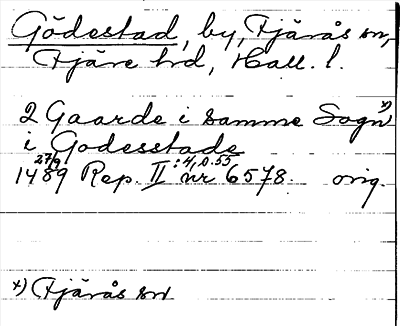 Gödestad, by, Fjärås sn,
Fjäre hd, Hall. l.
2 Gaarde i samme Sogn x)
i Godesstade
27/9 1489 Rep. II:4, s. 55 nr 6578. orig.
x) Fjärås sn